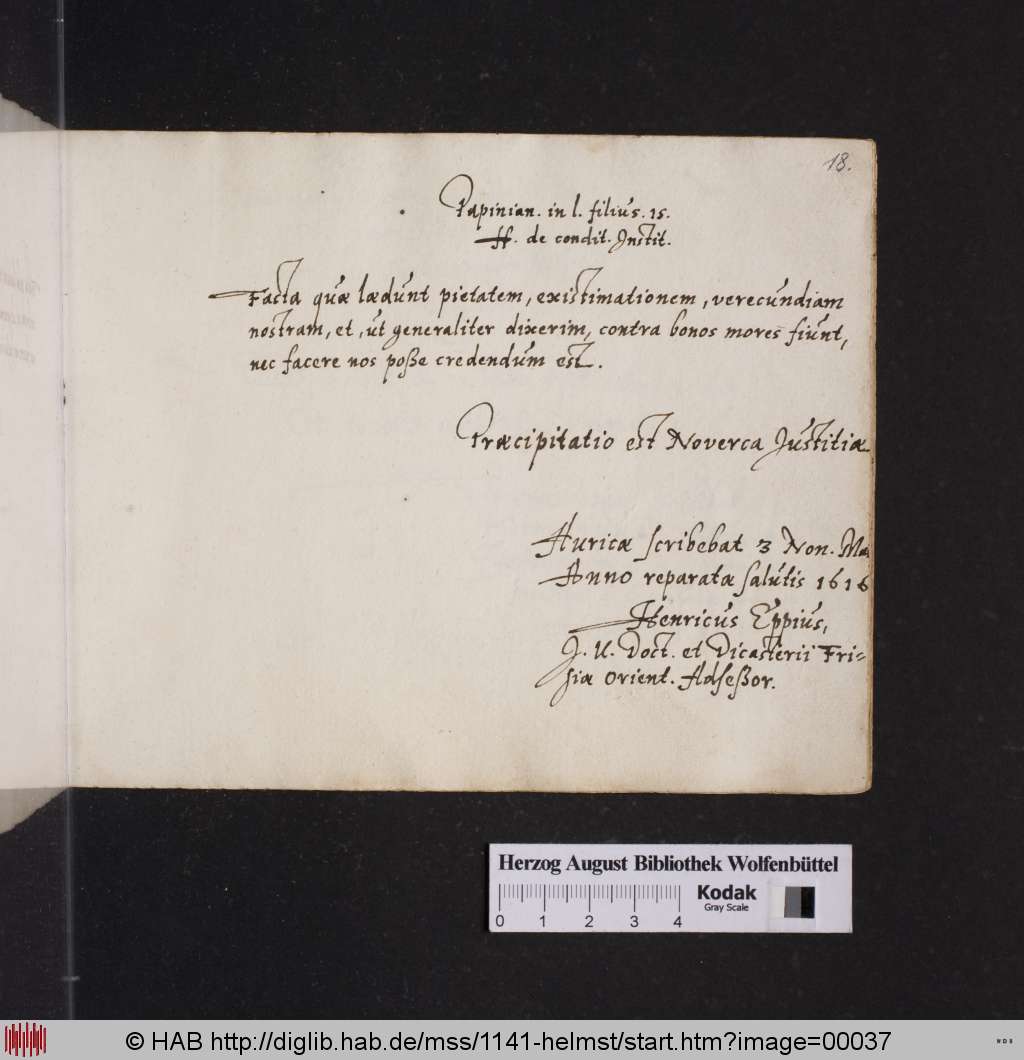 18.
Papinian. in l. filius. 15.
ff. de condit. Instit.
Facta quæ lædunt pietatem, existimationem, verecundiam
nostram, et, ut generaliter dixerim, contra bonos mores fiunt,
nec facere nos poße credendum est.
Præcipitatio est Noverca Justitiæ
Auricæ scribebat 3 Non. Ma
Anno reparatæ salutis 1616
Henricus Eppius,
J. U. Doct. et Dicasterii Fri-
siæ Orient. Adseßor.
Herzog August Bibliothek Wolfenbüttel
Kodak
Gray Scale
0 1 2 3 4
© HAB http://diglib.hab.de/mss/1141-helmst/start.htm?image=00037